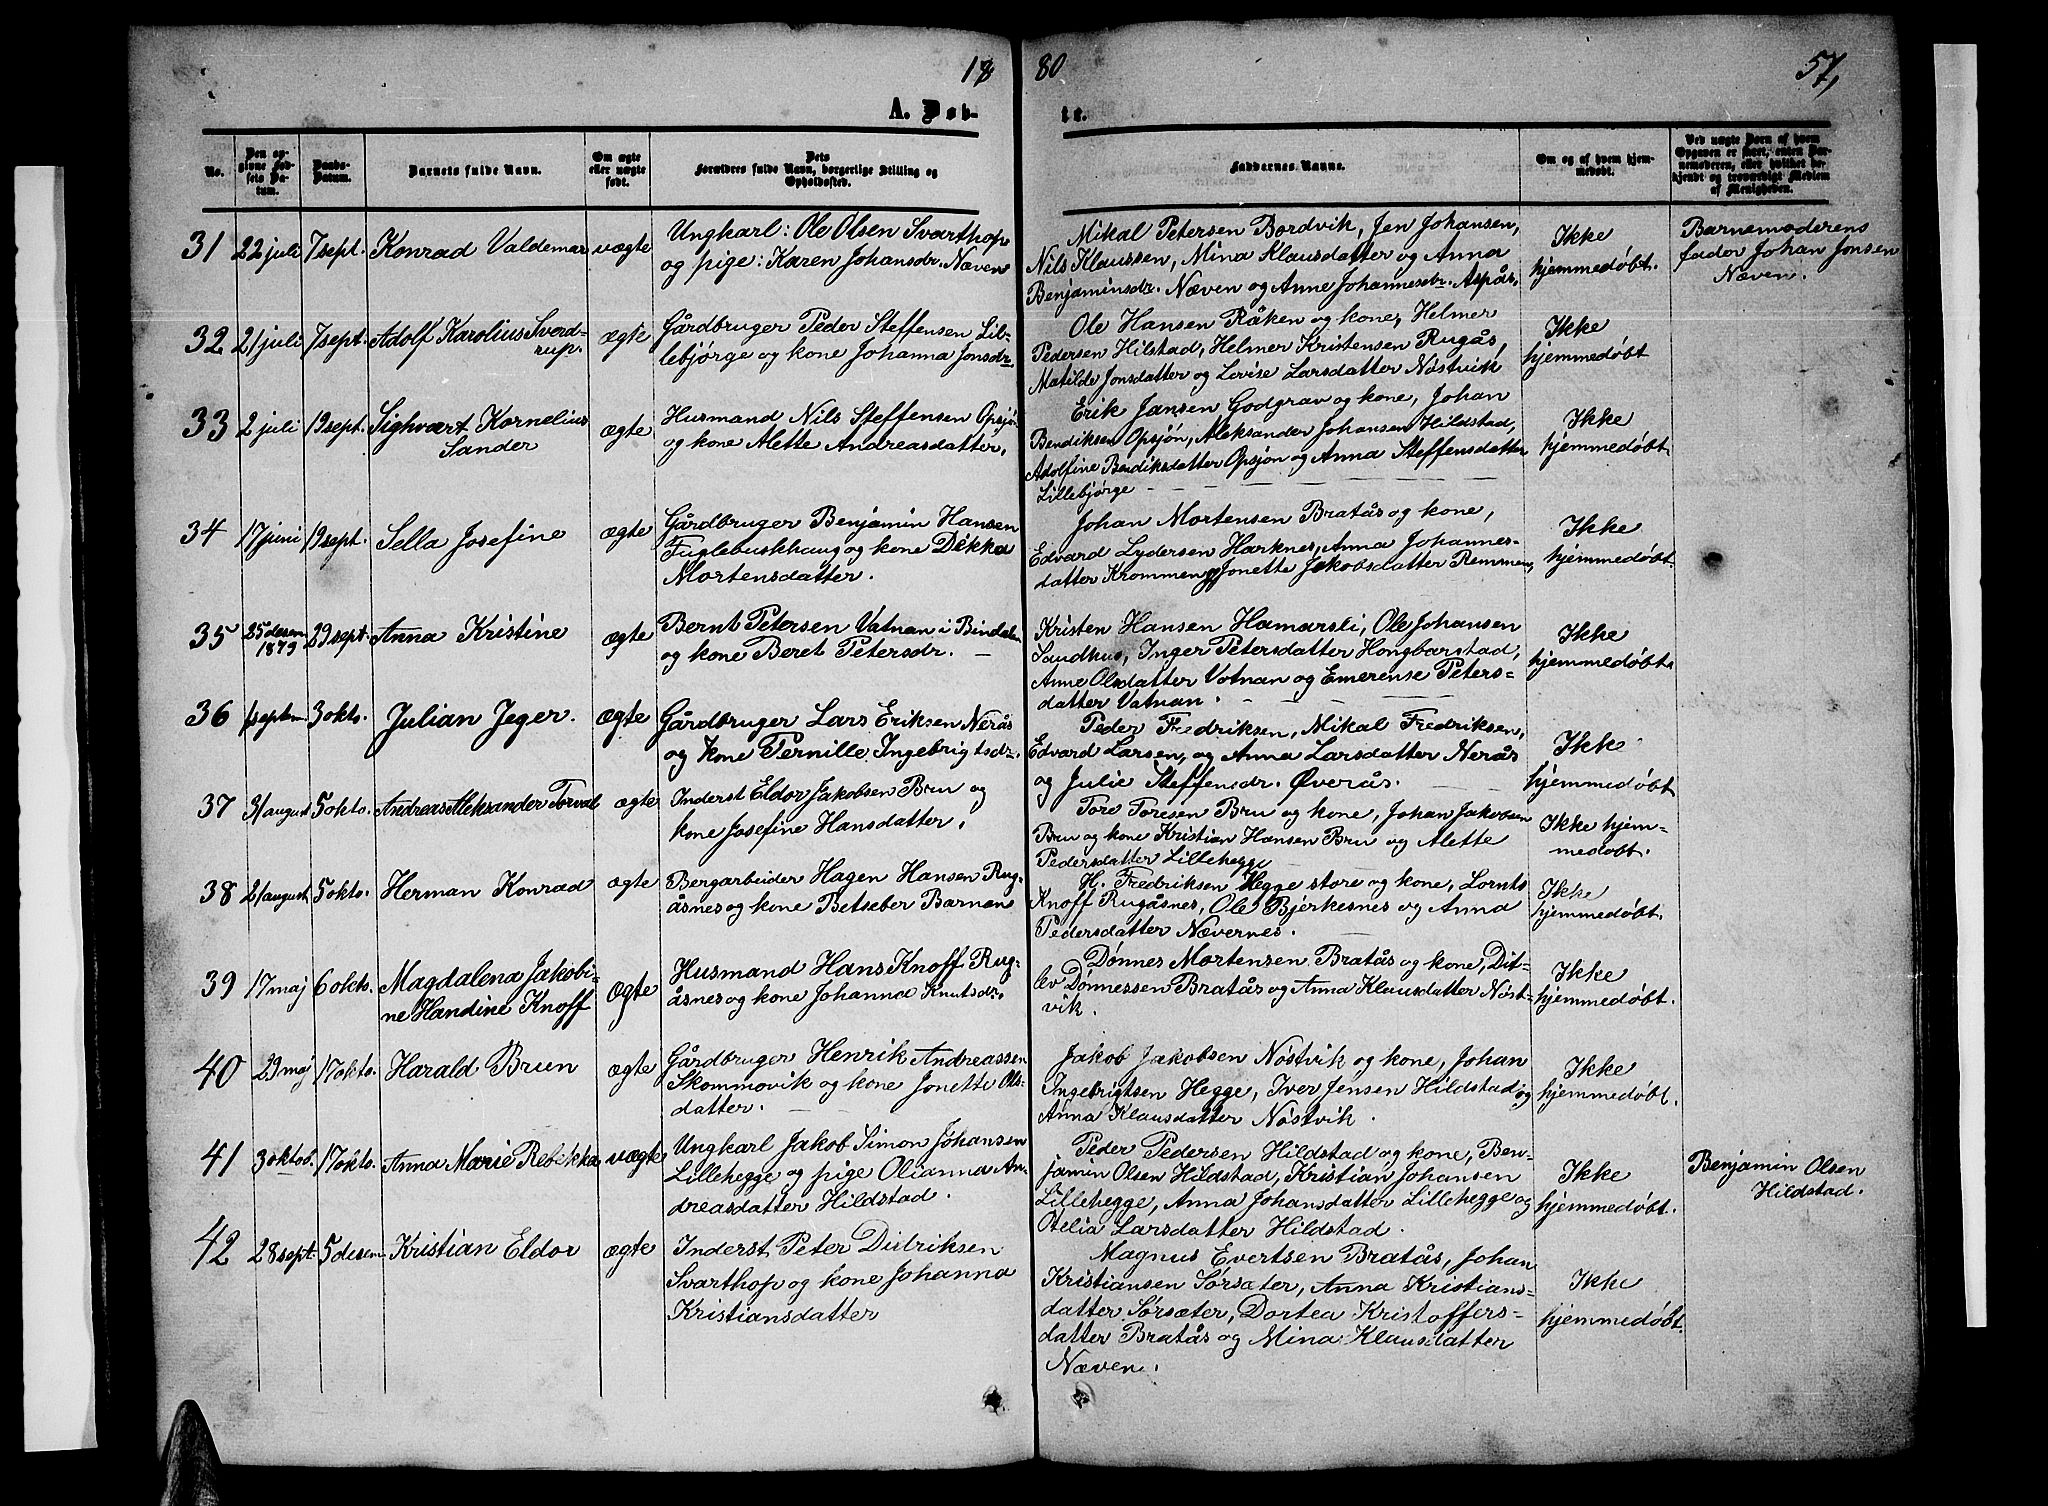 18 80 57,
A. Døb- te.
No.
Den opgivne Fødsels Datum.
Daabs-Datum.
Barnets fulde Navn.
Om ægte eller uægte født.
Dets Forældres fulde Navn, borgerlige Stilling og Opholdssted.
Faddernes Navne.
Om og af hvem hjemmedøbt.
Ved uægte Børn af hvem Opgaven er skeet, enten Barnemoderen, eller hvilket bekjendt og troværdigt Medlem af Menigheden.
31 22 juli 7 sept. Konrad Valdemar uægte
Ungkarl: Ole Olsen Svarthop
og pige: Karen Johansdr. Næven
Mikal Petersen Bordvik, Jen Johansen,
Nils Klaussen, Mina Klausdatter og Anna
Benjaminsdr. Næven og Anne Johannesdr. Aspås,
Ikke
hjemmedøbt.
Barnemoderens
fader Johan Jonsen
Næven.
32 21 juli 7 sept. Adolf Karolius Sverd-
rup. ægte
Gårdbruger Peder Steffensen Lil-
lebjørge og kone Johanna Jonsdr.
Ole Hansen Råken og kone, Helmer
Pedersen Hilstad, Helmer Kristensen Rugås,
Matilde Jonsdatter og Lovise Larsdatter Nøstvik
Ikke
hjemmedøbt
33 2 juli 19 sept. Sighvart Kornelius
Sander ægte
Husmand Nils Steffensen Opsjø
og kone Alette Andreasdatter,
Erik Jansen Godgrav og kone, Johan
Bendiksen Opsjøn, Aleksander Johansen Hildstad,
Adolfine Bendiksdatter Opsjøn og Anna Steffensdatter
Lillebjørge
Ikke
hjemmedøbt
34 17 juni 19 sept. Sella Josefine ægte
Gårdbruger Benjamin Hansen
Fuglebuskhaug og kone Dikka
Mortensdatter.
Johan Mortensen Bratås og kone,
Edvard Lydersen Harknes, Anna Johannes-
datter Krommen og Jonette Jakobsdatter Remmen,
Ikke
hjemmedøbt.
35 25 desem
1879 29 sept. Anna Kristine ægte
Bernt Petersen Vatnan i Bindalen
og kone Beret Petersdr.
Kristen Hansen Hamarsli, Ole Johansen
Sandhus, Inger Petersdatter Hongbarstad,
Anne Olsdatter Vatnan og Emerense Peters-
datter Vatnan.
Ikke
hjemmedøbt
36 1 septem. 3 okto. Julian Jeger. ægte
Gårdbruger Lars Eriksen Nerås
og kone Pernille Ingebrigtsdr.
Peder Fredriksen, Mikal Fredriksen,
Edvard Larsen, og Anna Larsdatter Nerås
og Julie Steffensdr. Øverås.
Ikke
hjemmedøbt
37 31 august 5 okto. Andreas Aleksander Torval ægte
Inderst Eldor Jakobsen Bru og
kone Josefine Hansdatter,
Tore Toresen Bru og kone, Johan Jakobsen
Bru og kone Kristian Hansen Bru og Alette
Pedersdatter Lillehegge
Ikke hjem-
medøbt.
38 21 august 5 okto. Herman Konrad ægte
Bergarbeider Hagen Hansen Rug-
åsnes og kone Betseber Barnans
H. Fredriksen Hegge store og kone, Lornts
Knoff Rugåsnes, Ole Bjerkesnes og Anna
Pedersdatter Nævernes.
Ikke
hjemmedøbt.
39 17 maj 6 okto. Magdalena Jakobi-
ne Handine Knoff ægte
Husmand Hans Knoff Rug-
åsnes og kone Johanna Knutsdr.
Dønnes Mortensen Bratås og kone, Dit-
lev Dønnessen Bratås og Anna Klausdatter Nøst-
vik.
Ikke
hjemmedøbt.
40 29 maj 17 okto. Harald Brun ægte
Gårdbruger Henrik Andreassen
Skommovik og kone Jonette Ols-
datter.
Jakob Jakobsen Nøstvik og kone, Johan
Ingebrigtsen Hegge, Iver Jensen Hildstad og
Anna Klausdatter Nøstvik.
Ikke
hjemmedøbt.
41 3 oktob. 17 okto. Anna Marie Rebekka uægte
Ungkarl Jakob Simon Johansen
Lillehegge og pige Olianna An-
dreasdatter Hildstad.
Peder Pedersen Hildstad og kone, Ben-
jamin Olsen Hildstad, Kristian Johansen
Lillehegge, Anna Johansdatter Lillehegge og
Otelia Larsdatter Hildstad.
Ikke
hjemmedøbt.
Benjamin Olsen
Hildstad.
42 28 sept. 5 desem. Kristian Eldor ægte
Inderst Peter Didriksen
Svarthop og kone Johanna
Kristiansdatter
Magnus Evertsen Bratås, Johan
Kristiansen Sørsæter, Anna Kristians-
datter Sørsæter, Dortea Kristoffers-
datter Bratås og Mina Klausdatter
Næven.
Ikke
hjemmedøbt.